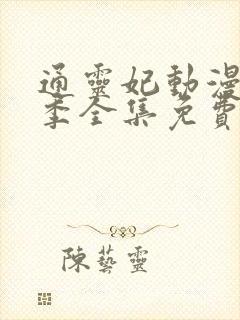 通靈妃動漫
季全集免費
陳藝靈